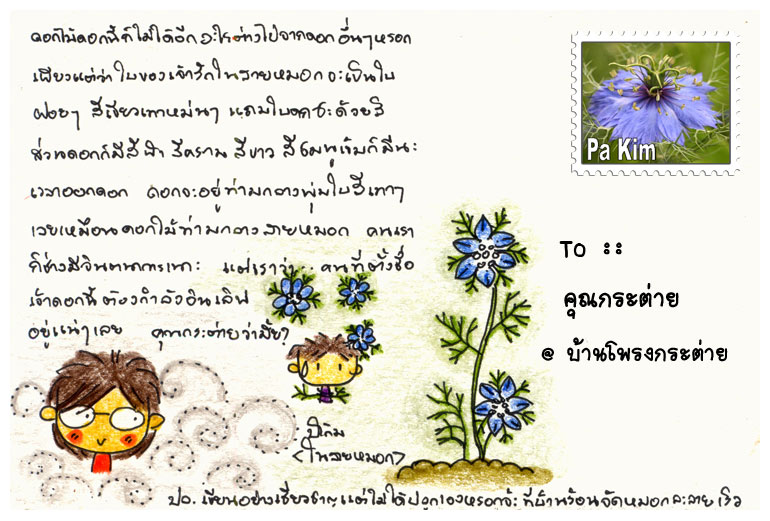 ดอกไม้ดอกนี้ก็ไม่ได้อีกอะไรต่างไปจากดอกอื่นๆหรอก
เพียงแต่ว่าใบของเจ้ารักในสายหมอก จะเป็นใบ
ฝอยๆ สีเขียวเทาหม่นๆ แถมใบดกซะด้วยสิ
ส่วนดอกก็มีสีฟ้า สีคราม สีขาว สีชมพูเข้มก็มีนะ
เวลาออกดอก ดอกจะอยู่ท่ามกลางพุ่มใบสีเทาๆ
เลยเหมือนดอกไม้ท่ามกลางสายหมอก คนเรา
ก็ช่างมีจินตนาการเนาะ แต่เราว่า.. คนที่ตั้งชื่อ
เจ้าดอกนี้ ต้องกำลังอินเลิฟ
อยู่แน่ๆเลย คุณกระต่ายว่ามั้ย?
Pa Kim
To ::
คุณกระต่าย
@ บ้านโพรงกระต่าย
ป้าคิม
<ในสายหมอก>
ปล. เขียนอย่างเชี่ยวชาญแต่ไม่ได้ปลูกเองหรอกจ้ะ ที่บ้านร้อนจัดหมอกละลายเร็ว